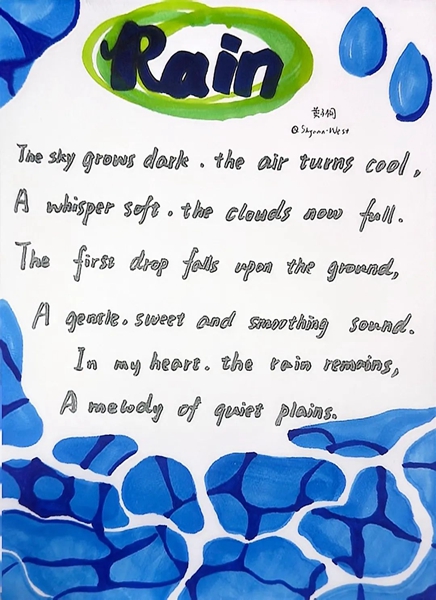 Rain
@Skyana-West
The sky grows dark. the air turns cool,
A whisper soft. the clouds now full.
The first drop falls upon the ground,
A gentle. sweet and smoothing sound.
In my heart. the rain remains,
A melody of quiet plains.